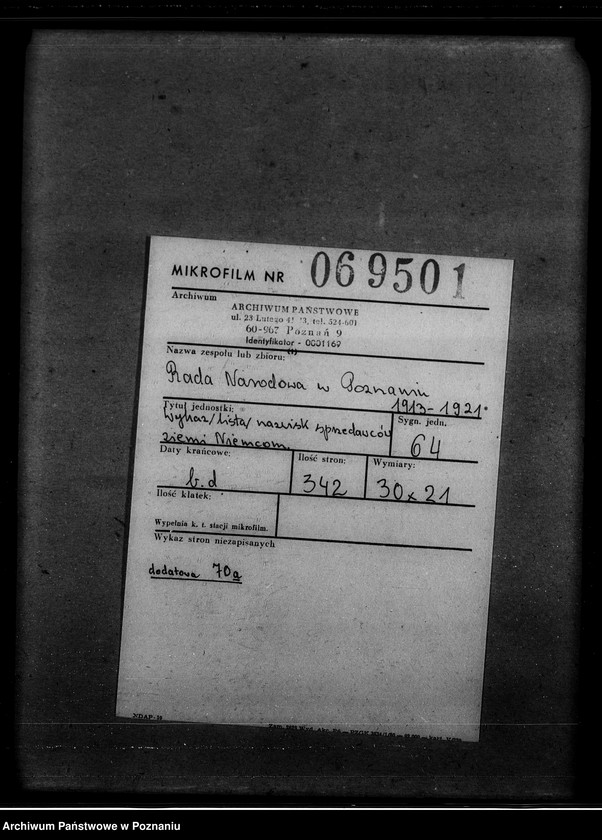 MIKROFILM NR 069501
Archiwum
ARCHIWUM PAŃSTWOWE
ul. 23 Lutego 41/43, tel. 524-601
60-967 Poznań 9
Identyfikator - 0001169
Nazwa zespołu lub zbioru:
Rada Narodowa w Poznaniu
1913-1921
Tytuł jednostki:
Wykaz/lista/ nazwisk sprzedawców
ziemi Niemcom.
Sygn. jedn.
64
Daty krańcowe:
b.d
Ilość stron:
342
Wymiary:
30x21
Ilość klatek:
Wypełnia k. t. stacji mikrofilm.
Wykaz stron niezapisanych
dodatowa 70a
NDAP-16
Archiwum Państwowe w Poznaniu